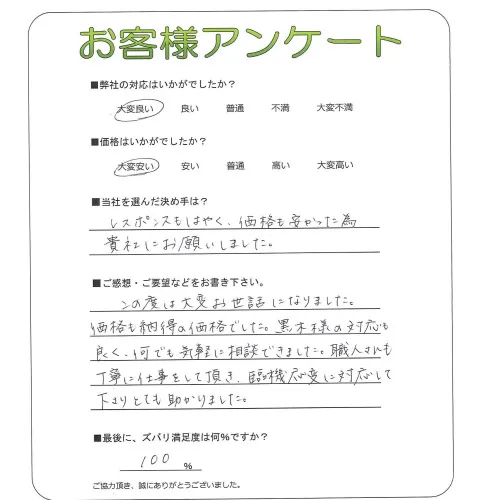 お客様アンケート
■弊社の対応はいかがでしたか?
大変良い 良い 普通 不満 大変不満
■価格はいかがでしたか?
大変安い 安い 普通 高い 大変高い
■当社を選んだ決め手は?
レスポンスもはやく、価格も安かった為
貴社にお願いしました。
■ご感想・ご要望などをお書き下さい。
この度は大変お世話になりました。
価格も納得の価格でした。黒木様の対応も
良く、何でも気軽に相談できました。職人さんも
丁寧に仕事をして頂き、臨機応変に対応して
下さりとても助かりました。
■最後に、ズバリ満足度は何%ですか?
100 %
ご協力頂き、誠にありがとうございました。